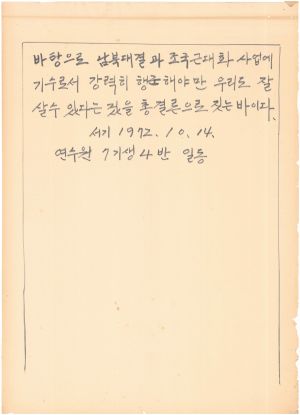 바탕으로 남북대결과 조국근대화 사업에
기수로서 강력히 행동해야만 우리도 잘
살수 있다는 것을 총결론으로 짓는 바이다.
서기 1972. 10. 14.
연수원 7기생 4반 일동